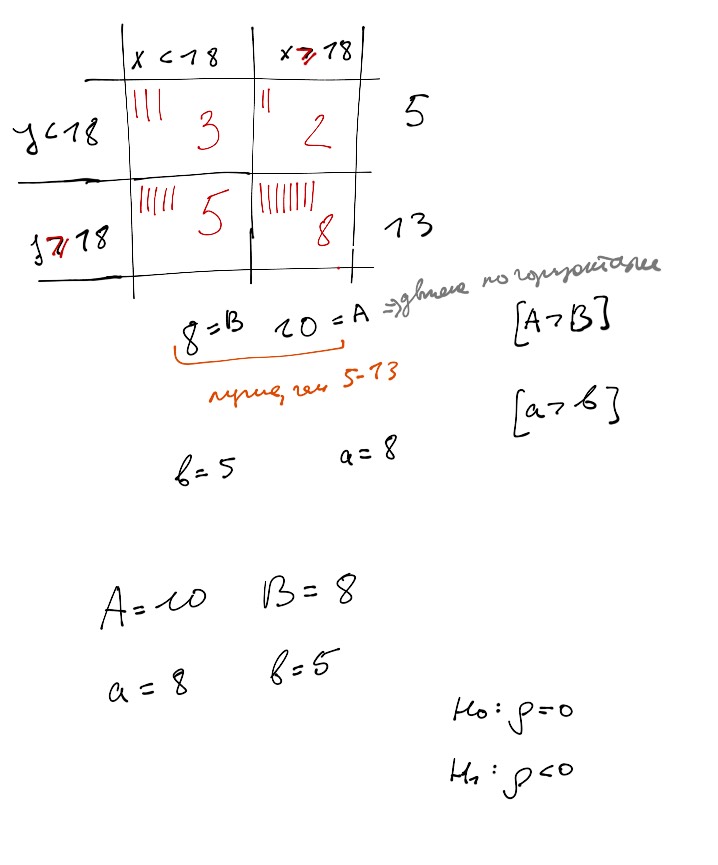 x < 18 x ⩾ 18
y < 18 3 2 5
y ⩾ 18 5 8 13
8 = B 10 = A ⇒ по горизонтали
[A > B]
лучше, чем 5-13
[a > b]
b = 5 a = 8
A = 10 B = 8
a = 8 b = 5
H₀: ρ = 0
H₁: ρ < 0